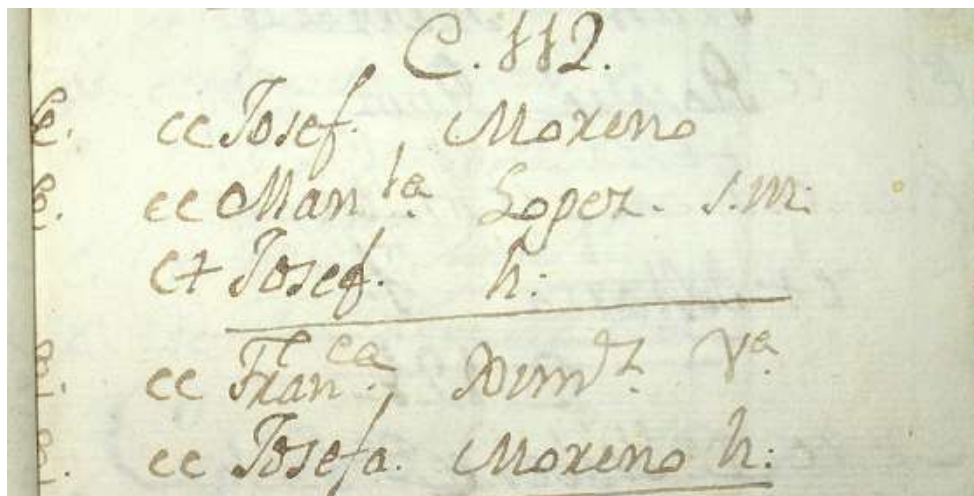 C. 112.
C. cc Josef. Moreno
C. cc Man.la Lopez. s.m:
c+ Josef. h:
C. cc Fran.ca V.a
C. cc Josefa. Moreno h: